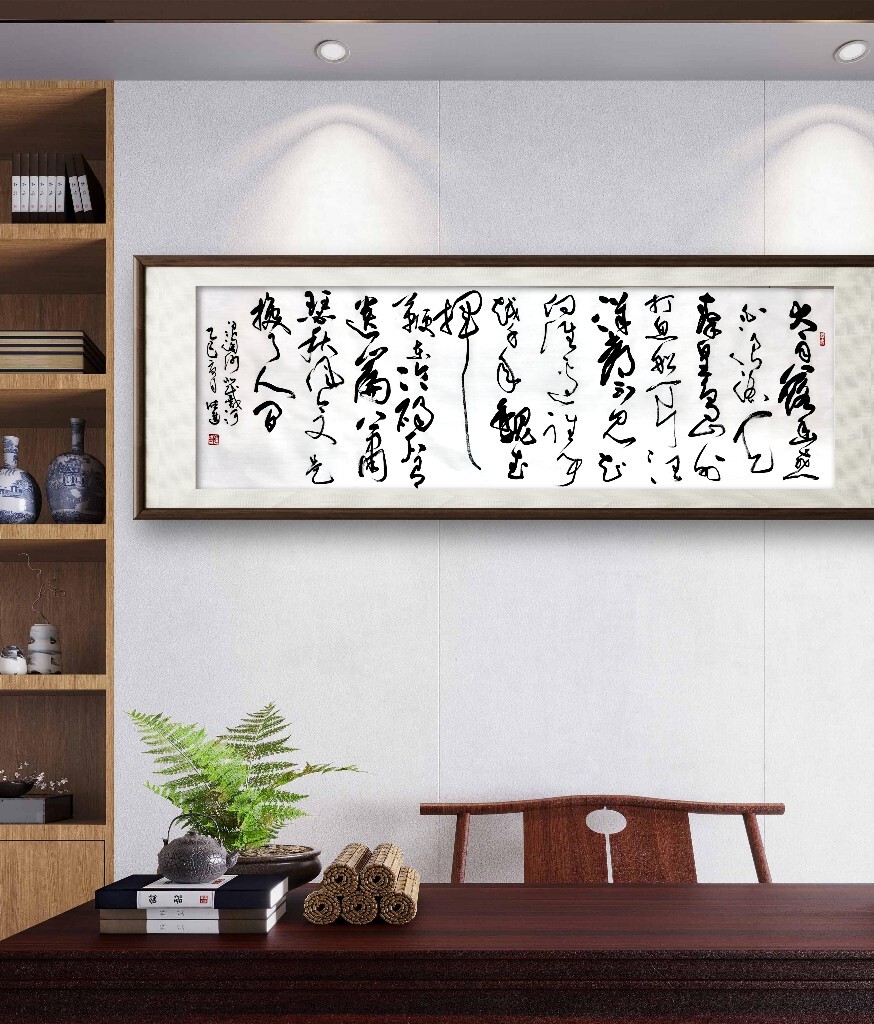 大雨落幽燕
白浪滔天
秦皇岛外
打鱼船一片汪
洋都不见知
向谁边往事
越千年魏武
挥
鞭东临碣石有
遗篇萧
瑟秋风今又是
换了人间
浪淘沙北戴河
乙巳